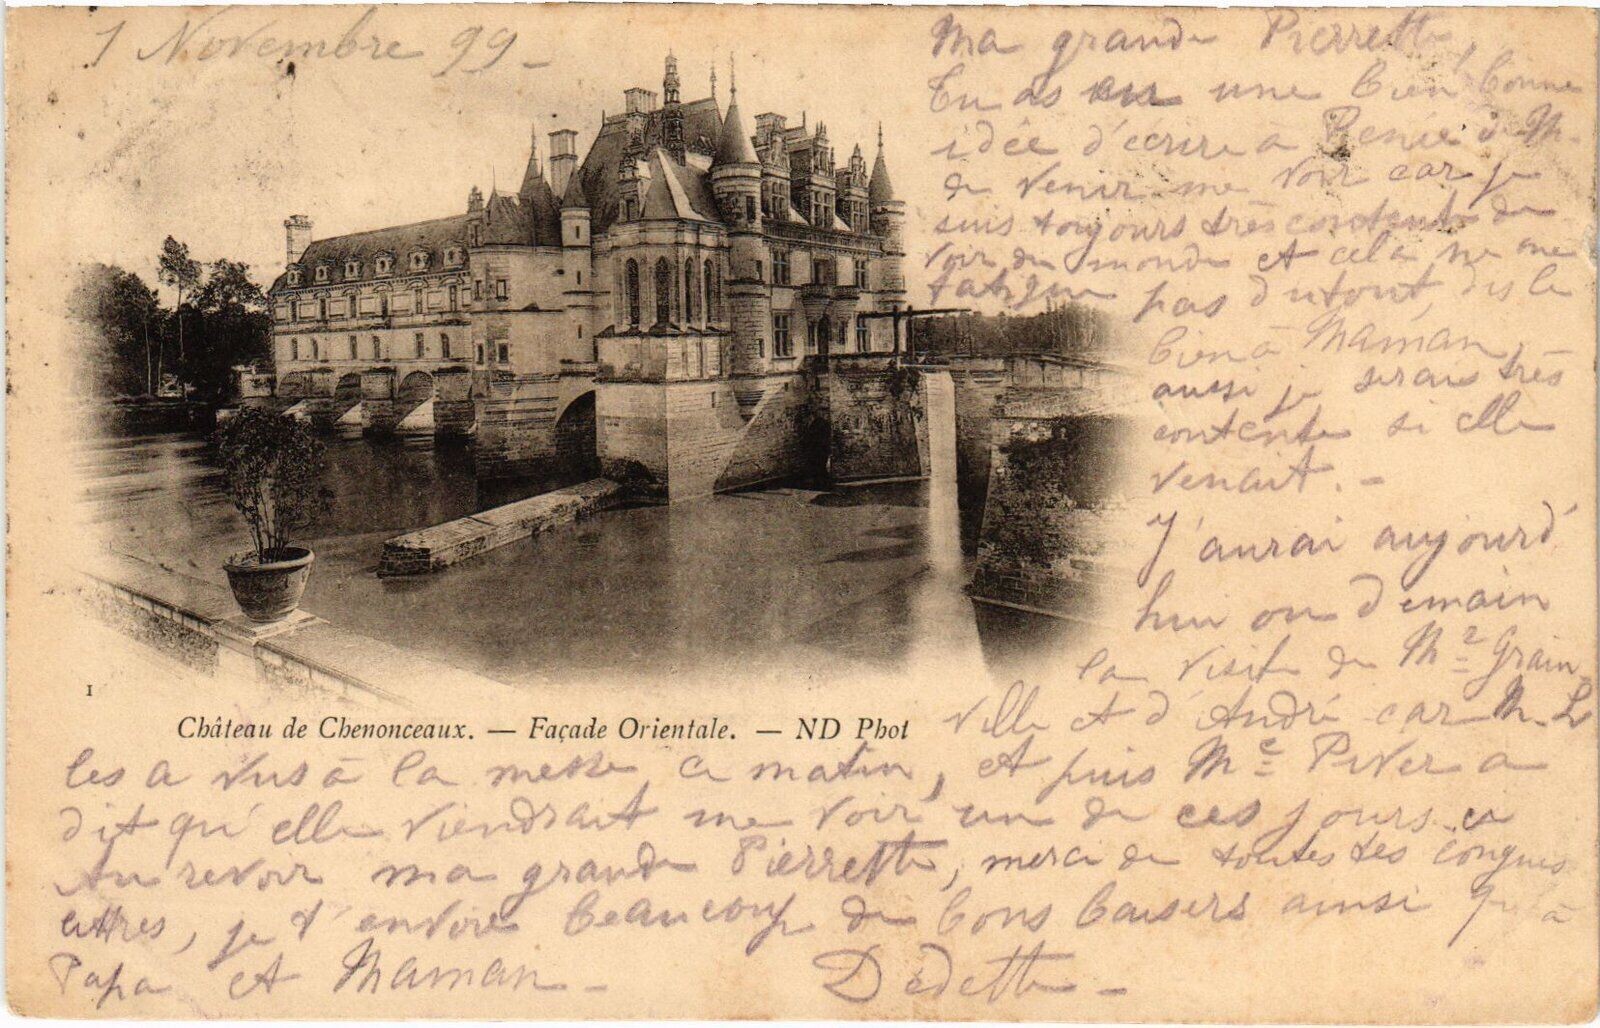 1 Novembre 99 -
Ma grande Pierrette,
Tu as eu une bien bonne
idée d'écrire à
de venir me voir car je
suis toujours très contente de
voir du monde et cela ne me
fatigue pas du tout, dis le
bien à Maman
aussi je serais très
contente si elle
venait. -
J'aurai aujourd'
hui ou demain
la visite de Mr Grain
ville et d'André car M. L
les a vus à la messe ce matin, et puis Me Piver a
dit qu'elle viendrait me voir un de ces jours.
Au revoir ma grande Pierrette, merci de toutes tes longues
lettres, je t'envoie beaucoup de bons baisers ainsi qu'à
Papa et Maman -
Dédette -
1
Château de Chenonceaux. — Façade Orientale. — ND Phot